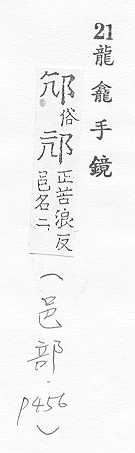 21 龍龕手鏡
俗
邟 正苦浪反
邑名二
(邑部·p456)